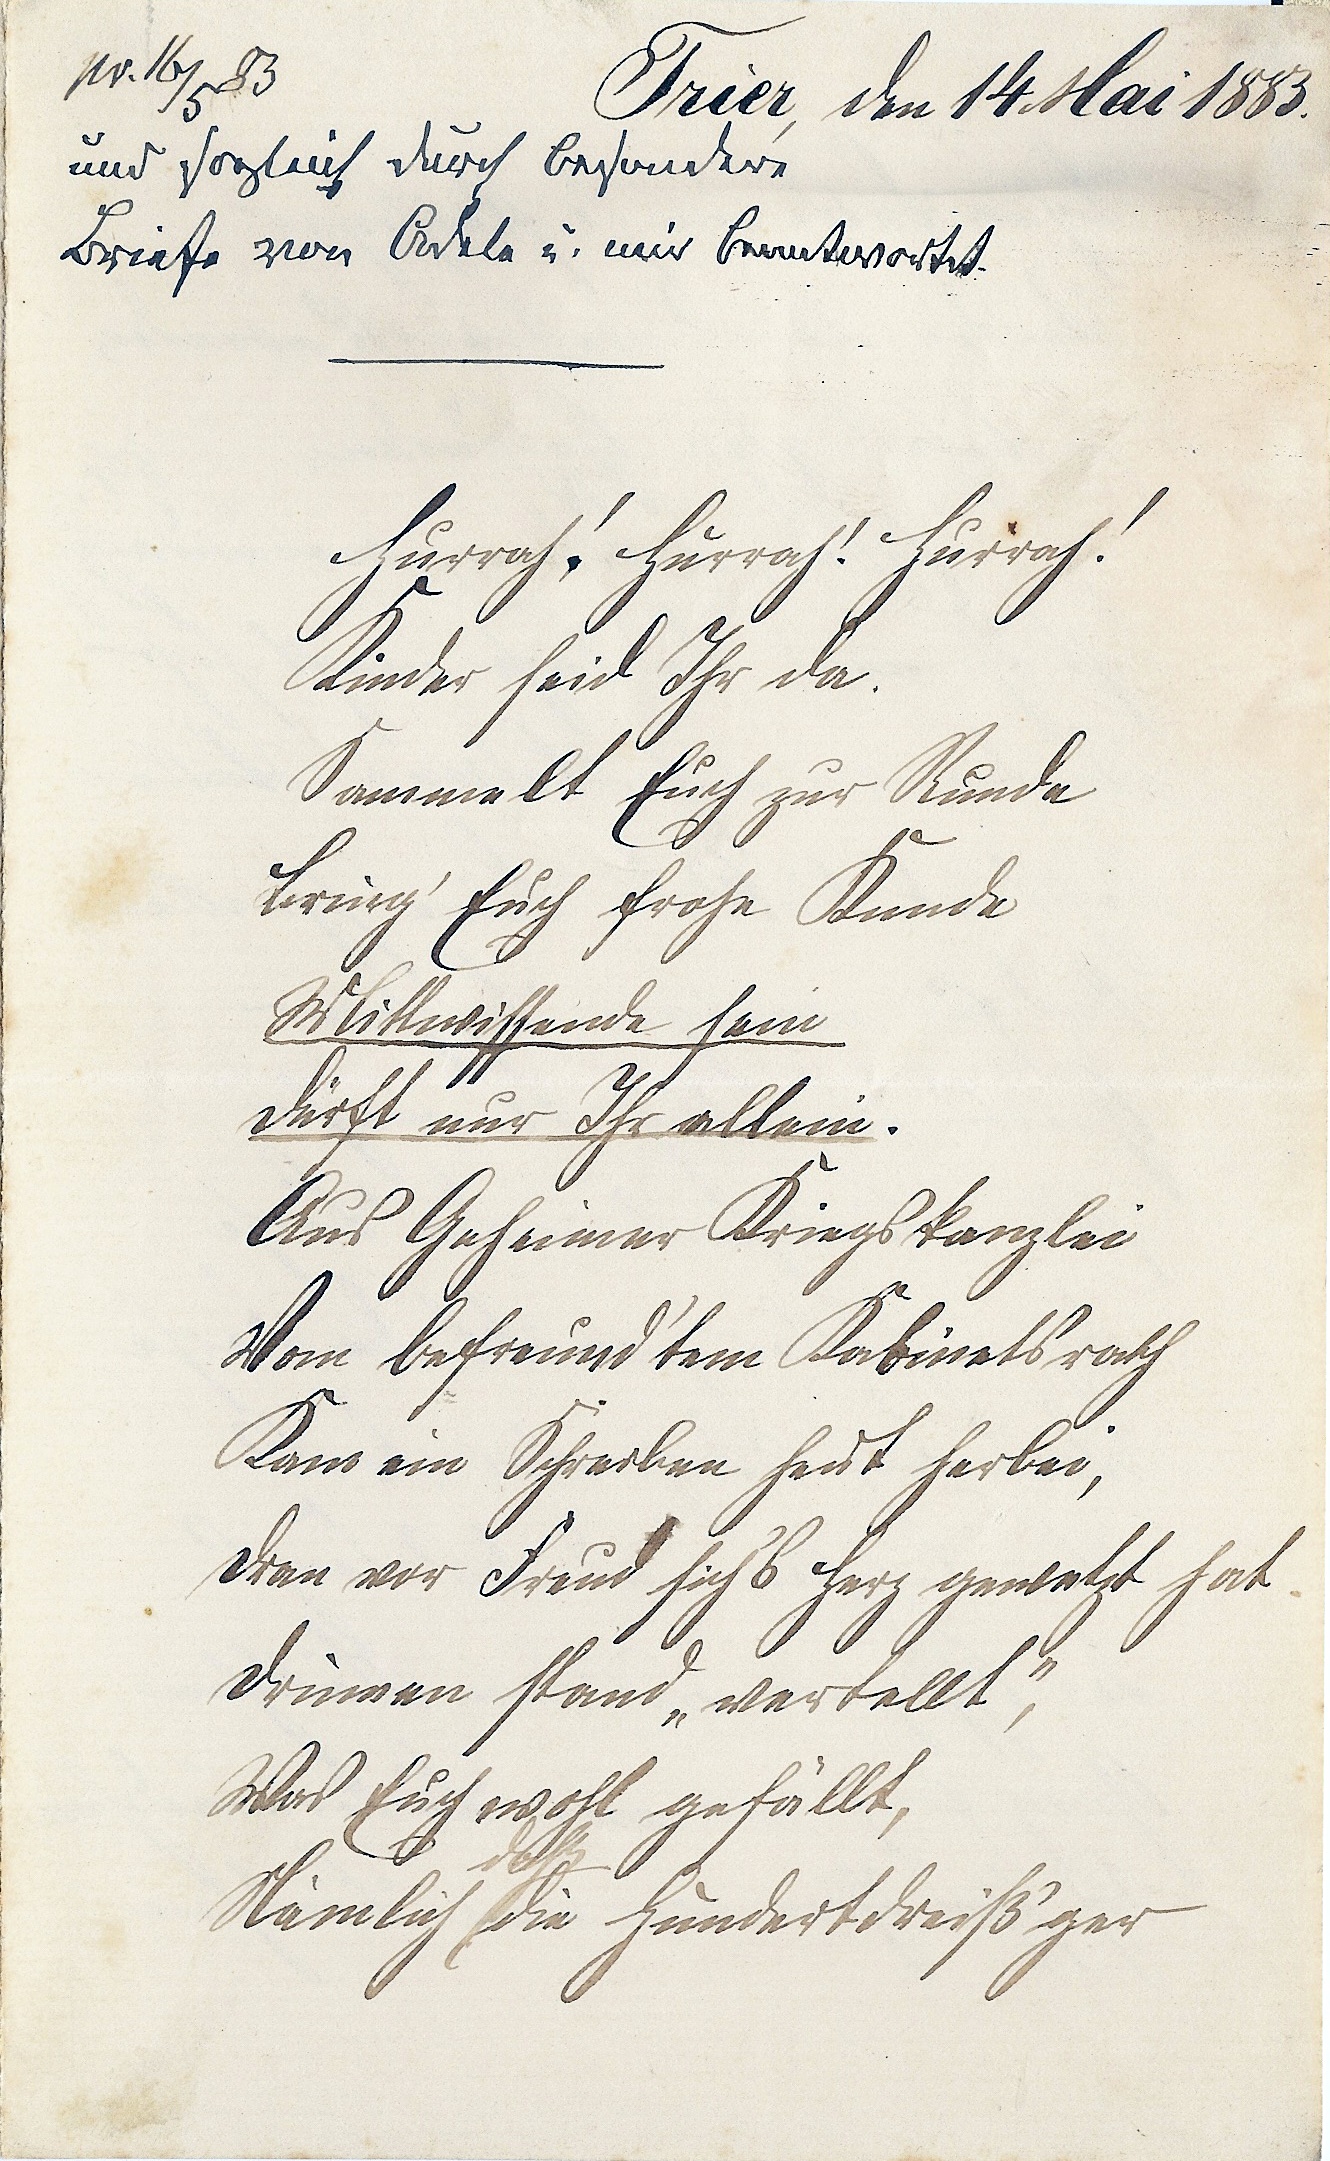 pr. 16/5 83
Trier, den 14. Mai 1883.
und sogleich durch besondere
Briefe von Adele u. mir beantwortet.
Hurrah! Hurrah! Hurrah!
Kinder seid Ihr da.
Sammelt Euch zur Runde
Bring' Euch frohe Kunde
Mitwissende sein
Dürft nur Ihr allein.
Aus Geheimer Kriegskanzlei
Vom befreund'tem Kabinetsrath
Kam ein Schreiben heut herbei,
Dran vor Freud sich's Herz geweitet hat
Drinnen stand „vertellt",
Was Euch wohl gefällt,
daß
Nämlich die Hundertdreiß'ger